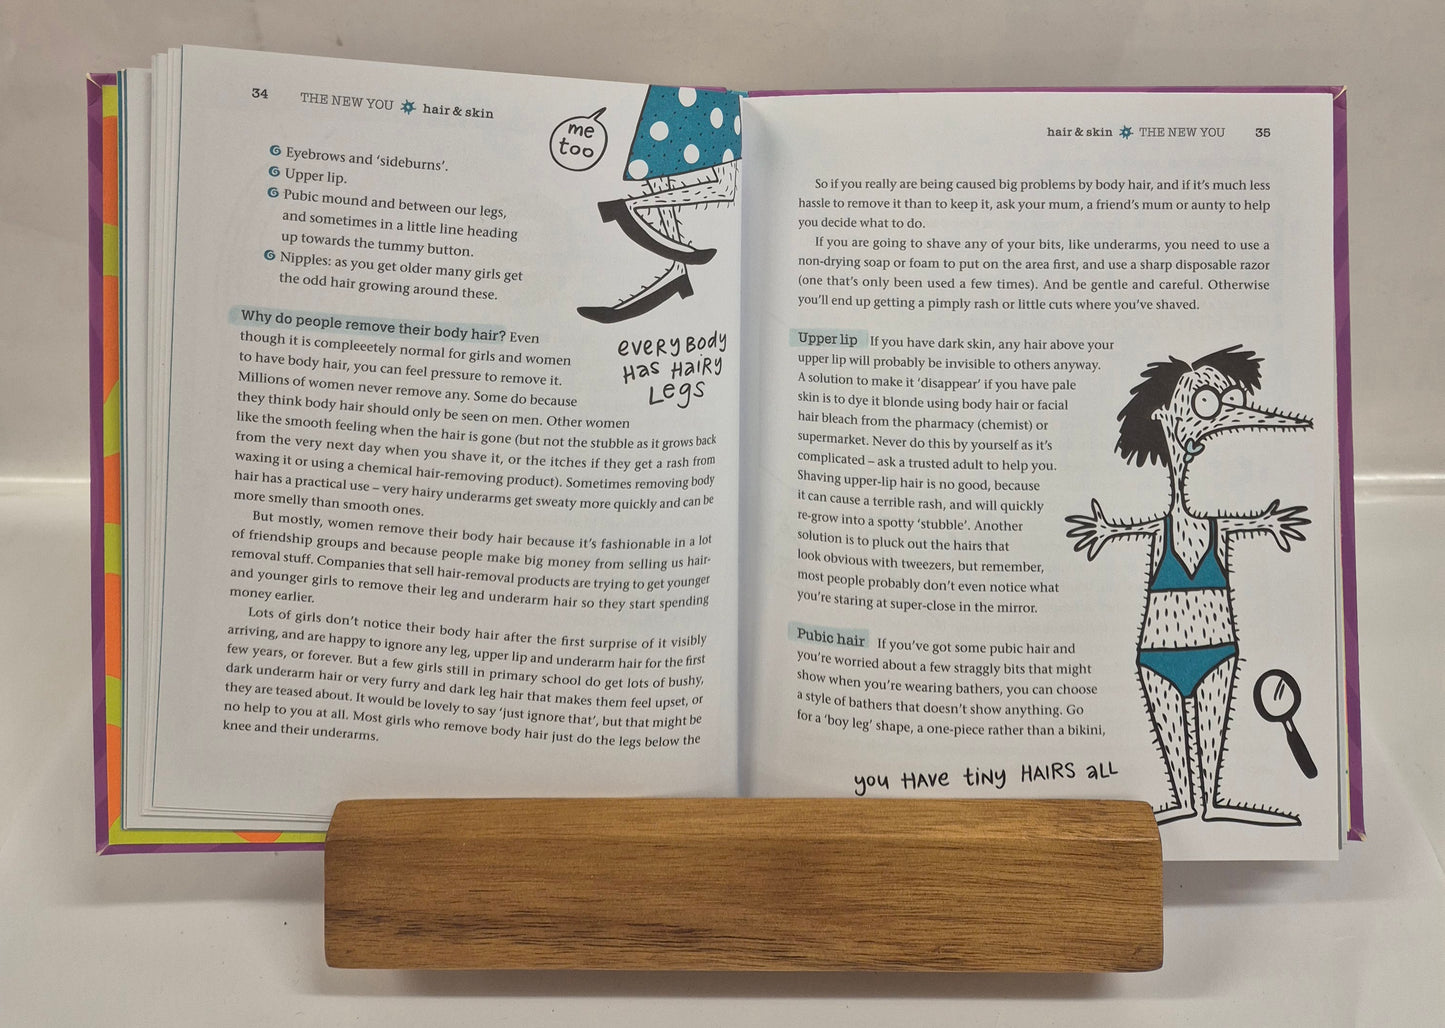 34 THE NEW YOU hair & skin
Eyebrows and ‘sideburns’.
Upper lip.
Pubic mound and between our legs,
and sometimes in a little line heading
up towards the tummy button.
Nipples: as you get older many girls get
the odd hair growing around these.
me
too
everybody
has hairy
legs
Why do people remove their body hair? Even
though it is compleeetely normal for girls and women
to have body hair, you can feel pressure to remove it.
Millions of women never remove any. Some do because
they think body hair should only be seen on men. Other women
like the smooth feeling when the hair is gone (but not the stubble as it grows back
from the very next day when you shave it, or the itches if they get a rash from
waxing it or using a chemical hair-removing product). Sometimes removing body
hair has a practical use – very hairy underarms get sweaty more quickly and can be
more smelly than smooth ones.
But mostly, women remove their body hair because it’s fashionable in a lot
of friendship groups and because people make big money from selling us hair-
removal stuff. Companies that sell hair-removal products are trying to get younger
and younger girls to remove their leg and underarm hair so they start spending
money earlier.
Lots of girls don’t notice their body hair after the first surprise of it visibly
arriving, and are happy to ignore any leg, upper lip and underarm hair for the first
few years, or forever. But a few girls still in primary school do get lots of bushy,
dark underarm hair or very furry and dark leg hair that makes them feel upset, or
they are teased about. It would be lovely to say ‘just ignore that’, but that might be
no help to you at all. Most girls who remove body hair just do the legs below the
knee and their underarms.
hair & skin THE NEW YOU 35
So if you really are being caused big problems by body hair, and if it’s much less
hassle to remove it than to keep it, ask your mum, a friend’s mum or aunty to help
you decide what to do.
If you are going to shave any of your bits, like underarms, you need to use a
non-drying soap or foam to put on the area first, and use a sharp disposable razor
(one that’s only been used a few times). And be gentle and careful. Otherwise
you’ll end up getting a pimply rash or little cuts where you’ve shaved.
Upper lip If you have dark skin, any hair above your
upper lip will probably be invisible to others anyway.
A solution to make it ‘disappear’ if you have pale
skin is to dye it blonde using body hair or facial
hair bleach from the pharmacy (chemist) or
supermarket. Never do this by yourself as it’s
complicated – ask a trusted adult to help you.
Shaving upper-lip hair is no good, because
it can cause a terrible rash, and will quickly
re-grow into a spotty ‘stubble’. Another
solution is to pluck out the hairs that
look obvious with tweezers, but remember,
most people probably don’t even notice what
you’re staring at super-close in the mirror.
Pubic hair If you’ve got some pubic hair and
you’re worried about a few straggly bits that might
show when you’re wearing bathers, you can choose
a style of bathers that doesn’t show anything. Go
for a ‘boy leg’ shape, a one-piece rather than a bikini,
you have tiny hairs all